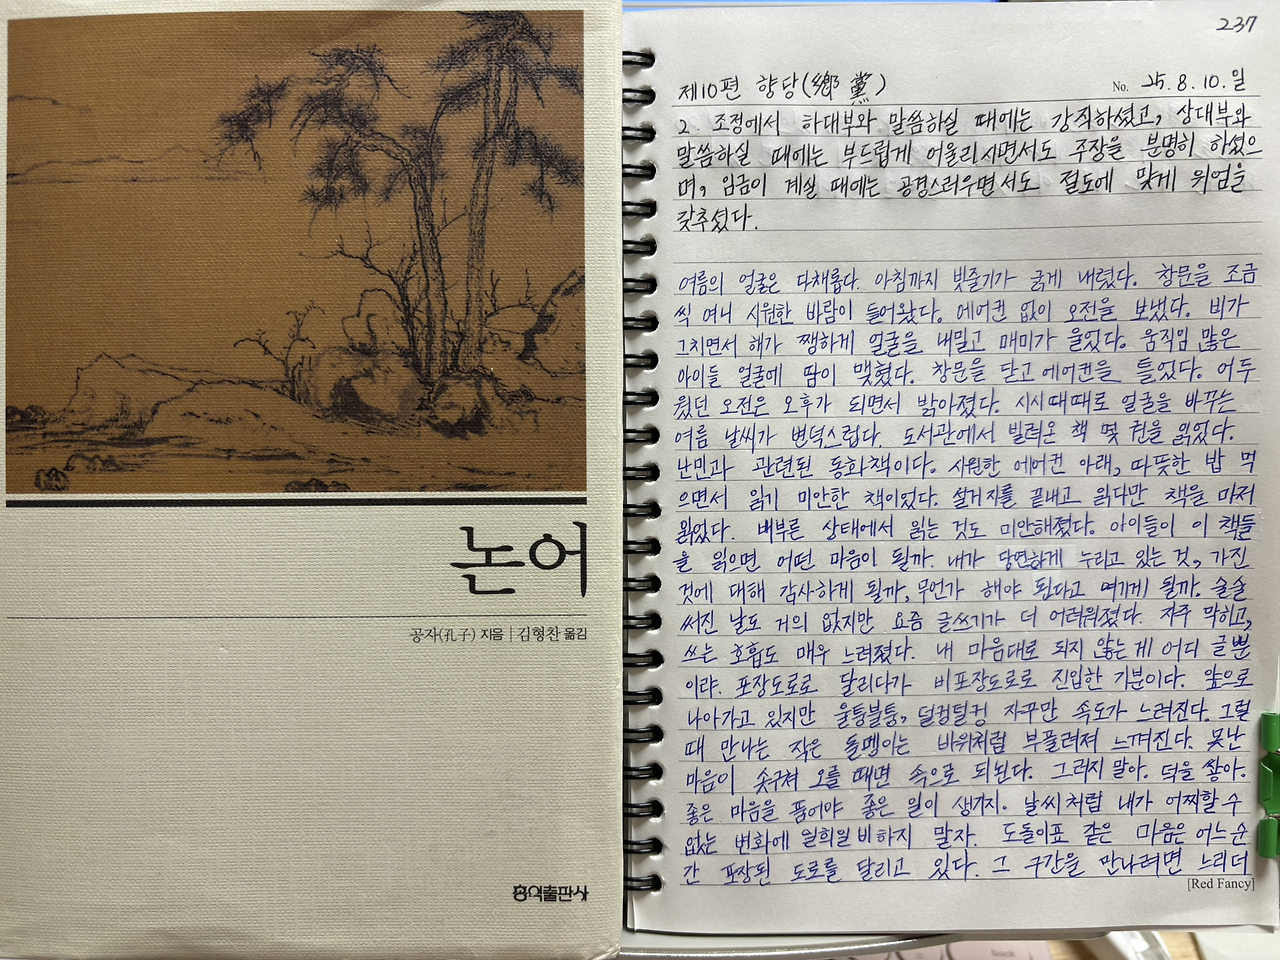 논어
공자(孔子) 지음 | 김형찬 옮김
홍익출판사
237
제10편 향당(鄕黨) No. 25. 8. 10. 일
2. 조정에서 하대부와 말씀하실 때에는 강직하셨고, 상대부와
말씀하실 때에는 부드럽게 어울리시면서도 주장을 분명히 하셨으
며, 임금이 계실 때에는 공경스러우면서도 절도에 맞게 위엄을
갖추셨다.
여름의 얼굴은 다채롭다. 아침까지 빗줄기가 굵게 내렸다. 창문을 조금
씩 여니 시원한 바람이 들어왔다. 에어컨 없이 오전을 보냈다. 비가
그치면서 해가 쨍하게 얼굴을 내밀고 매미가 울었다. 움직임 많은
아이들 얼굴에 땀이 맺혔다. 창문을 닫고 에어컨을 틀었다. 어두
웠던 오전은 오후가 되면서 밝아졌다. 시시때때로 얼굴을 바꾸는
여름 날씨가 변덕스럽다. 도서관에서 빌려온 책 몇 권을 읽었다.
난민과 관련된 동화책이다. 시원한 에어컨 아래, 따뜻한 밥 먹
으면서 읽기 미안한 책이었다. 설거지를 끝내고 읽다만 책을 마저
읽었다. 배부른 상태에서 읽는 것도 미안해졌다. 아이들이 이 책들
을 읽으면 어떤 마음이 될까. 내가 당연하게 누리고 있는 것, 가진
것에 대해 감사하게 될까, 무언가 해야 된다고 여기게 될까. 술술
써진 날도 거의 없지만 요즘 글쓰기가 더 어려워졌다. 자주 막히고,
쓰는 호흡도 매우 느려졌다. 내 마음대로 되지 않는 게 어디 글뿐
이랴. 포장도로로 달리다가 비포장도로로 진입한 기분이다. 앞으로
나아가고 있지만 울퉁불퉁, 덜컹덜컹 자꾸만 속도가 느려진다. 그럴
때 만나는 작은 돌멩이는 바위처럼 부풀려져 느껴진다. 못난
마음이 솟구쳐 오를 때면 속으로 되뇐다. 그러지 말아. 덕을 쌓아.
좋은 마음을 품어야 좋은 일이 생기지. 날씨처럼 내가 어찌할 수
없는 변화에 일희일비하지 말자. 도돌이표 같은 마음은 어느 순
간 포장된 도로를 달리고 있다. 그 구간을 만나려면 느리더
[Red Fancy]